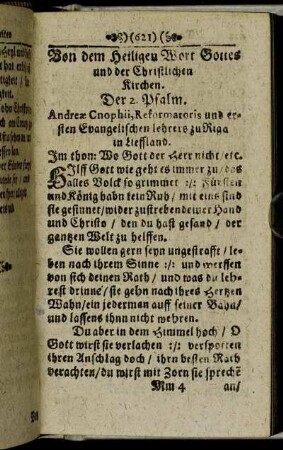 (621)
Von dem Heiligen Wort Gottes
und der Christlichen
Kirchen.
Der 2. Psalm.
Andreæ Cnophii, Reformatoris und er-
sten Evangelischen lehrers zu Riga
in Lieffland.
Im thon: Wo Gott der Herr nicht/ etc.
HIlff Gott wie geht es immer zu/ das
alles Volck so grimmet :/: Fürsten
und König habn kein Ruh/ mit eins sind
sie gesinnet/ wider zustreben deiner Hand
und Christo/ den du hast gesand/ der
gantzen Welt zu helffen.
Sie wollen gern seyn ungestrafft/ le-
ben nach ihrem Sinne :/: und werffen
von sich deinen Rath/ und was du leh-
rest drinne/ sie gehn nach ihres Hertzen
Wahn/ ein jederman auff seiner Bahn/
und lassens ihnn nicht wehren.
Du aber in dem Himmel hoch/ O
Gott wirst sie verlachen :/: verspotten
ihren Anschlag doch/ ihrn besten Rath
verachten/ du wirst mit Zorn sie sprechē
Mm 4 an/